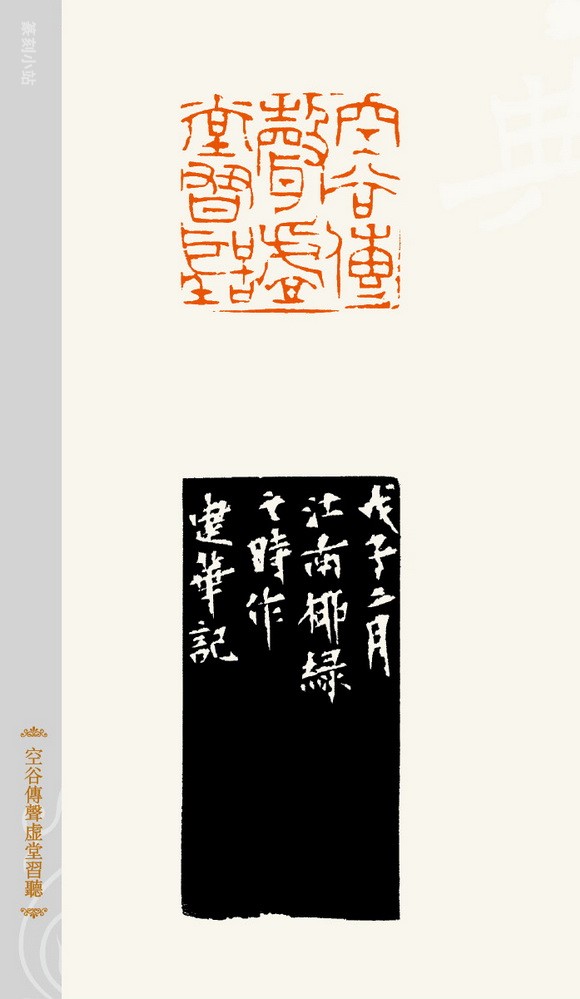 篆刻小站
空谷傳
聲虛
堂習聽
戊子二月
江南柳綠
之時作
建華記
空谷傳聲虛堂習聽